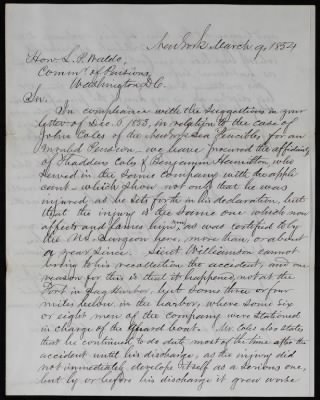 New York March 9, 1854
Hon. L. P. Waldo,
Commr. of Pensions,
Washington, D.C.
Sir,
In compliance with the suggestions in your
letter of Dec. 6, 1853, in relation to the case of
John Coles of the New York Sea Fencibles, for an
Invalid Pension, we have procured the affidavits
of Thaddeus Coles & Benjamin Hamilton, who
served in the same company with the appli
cant – which show not only that he was
injured as he sets forth in his declaration, but
that the injury is the same one which now
affects and lames him, as was certified to by
the Surgeon here, more than, or about
a year since. Lieut Williamson cannot
bring to his recollection the accident, and one
reason for this is that it happened, not at the
Fort in harbor, but some three or four
miles below in the harbor, where some six
or eight men of the company were stationed
in charge of the guard boat. Mr. Coles also states
that he continued to do duty most of the time after the
accident until his discharge, as the injury did
not immediately develope itself as a serious one,
but by or before his discharge it grew worse